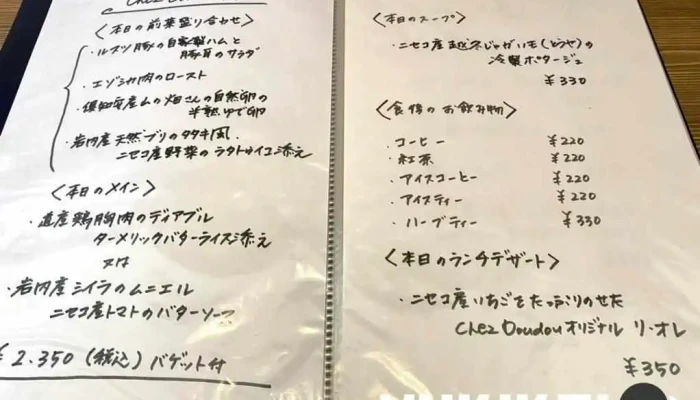 Chez
〈本日の前菜盛り合わせ〉
・ルスツ豚の自家製ハムと
豚耳のサラダ
・エゾシカ肉のロースト
・倶知安産山の畑さんの自然卵の
半熟ゆで卵
・岩内産天然ブリのタタキ風
ニセコ産野菜のラタトゥイユ添え
〈本日のメイン〉
・道産鶏胸肉のディアブル
ターメリックバターライス添え
又は
・岩内産シイラのムニエル
ニセコ産トマトのバターソース
¥2.350(税込)バゲット付
〈本日のスープ〉
・ニセコ産越冬じゃがいも(とうや)の
冷製ポタージュ
¥330
〈食後のお飲み物〉
・コーヒー ¥220
・紅茶 ¥220
・アイスコーヒー ¥220
・アイスティー ¥220
・ハーブティー ¥330
〈本日のランチデザート〉
・ニセコ産いちごをたっぷりのせた
Chez Doudouオリジナル リ・オレ
¥350